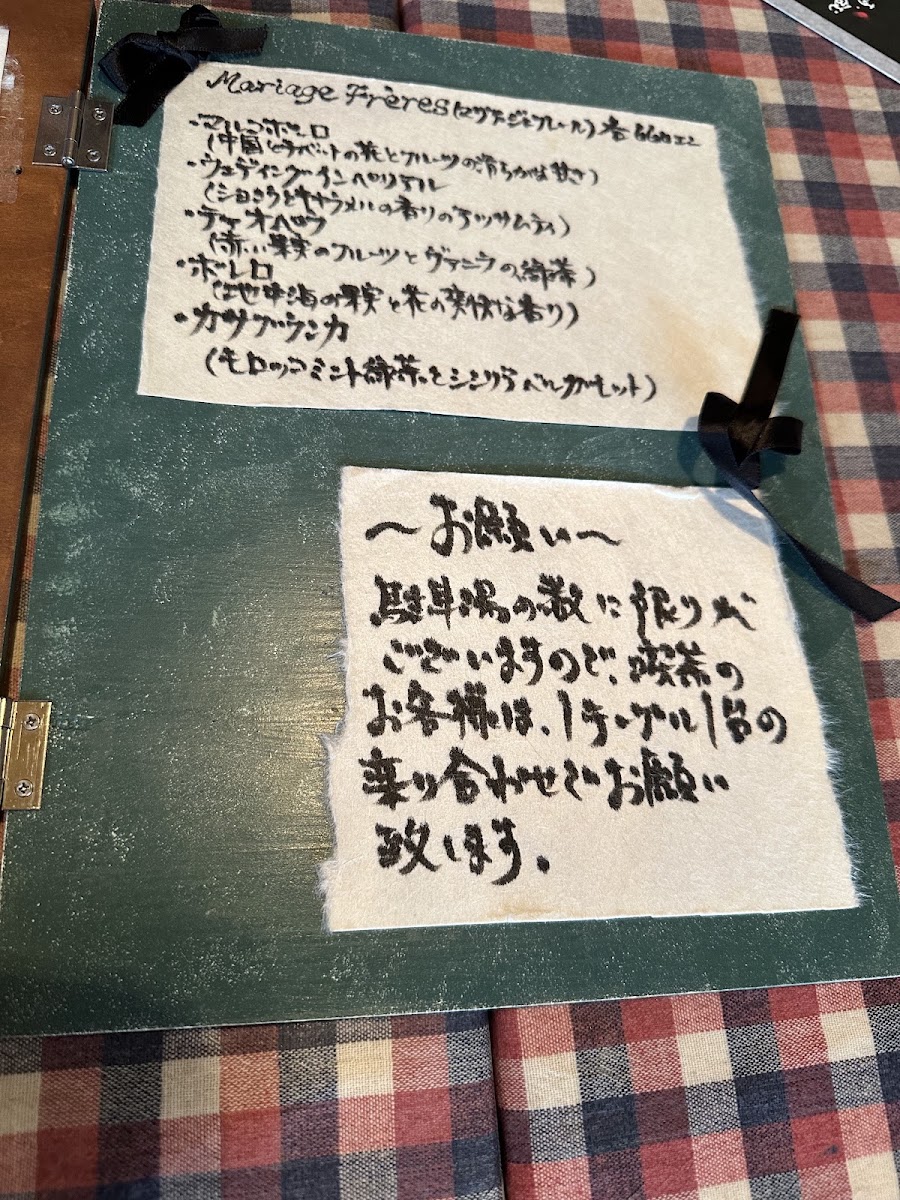 Mariage Frères(マリアージュフレール) 各660エン
・マルコポーロ
(中国とチベットの花とフルーツの滑らかな甘さ)
・ウェディングインペリアル
(ショコラとキャラメルの香りのアッサムティ)
・テオペラ
(赤い果実のフルーツとヴァニラの緑茶)
・ボレロ
(地中海の果実と花の爽快な香り)
・カサブランカ
(モロッコミント緑茶とシンプルベルガモット)
〜お願い〜
駐車場の数に限りが
ございますので、喫茶の
お客様は、1テーブル1台の
乗り合わせでお願い
致します。